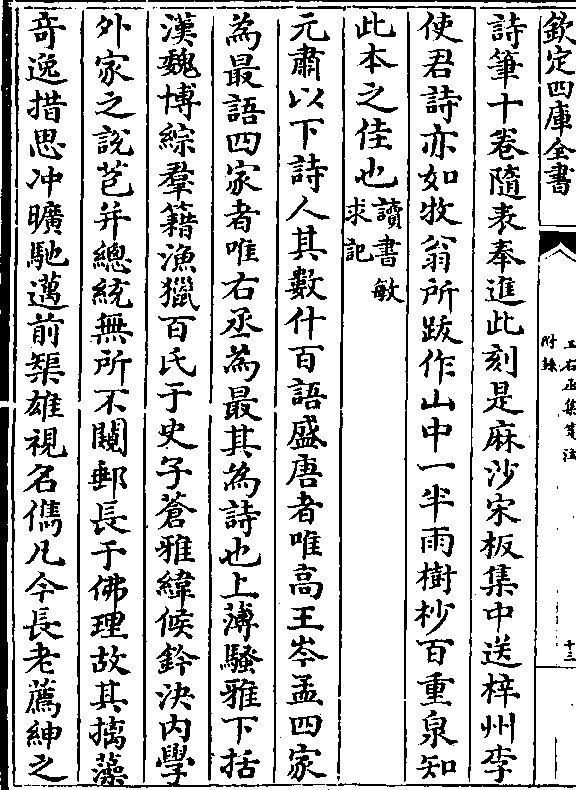 欽定四庫全書
王右丞集箋注
附錄
十三
詩筆十卷隨表奉進此刻是麻沙宋板集中送梓州李
使君詩亦如牧翁所跋作山中一半雨樹杪百重泉知
此本之佳也讀書敏
求記
元肅以下詩人其數什百語盛唐者唯高王岑孟四家
為最語四家者唯右丞為最其為詩也上薄騷雅下括
漢魏博綜羣籍漁獵百氏于史子蒼雅緯候鈐決內學
外家之說苞并總統無所不闚郵長于佛理故其摛藻
奇逸措思冲曠馳邁前榘雄視名儁凡今長老薦紳之